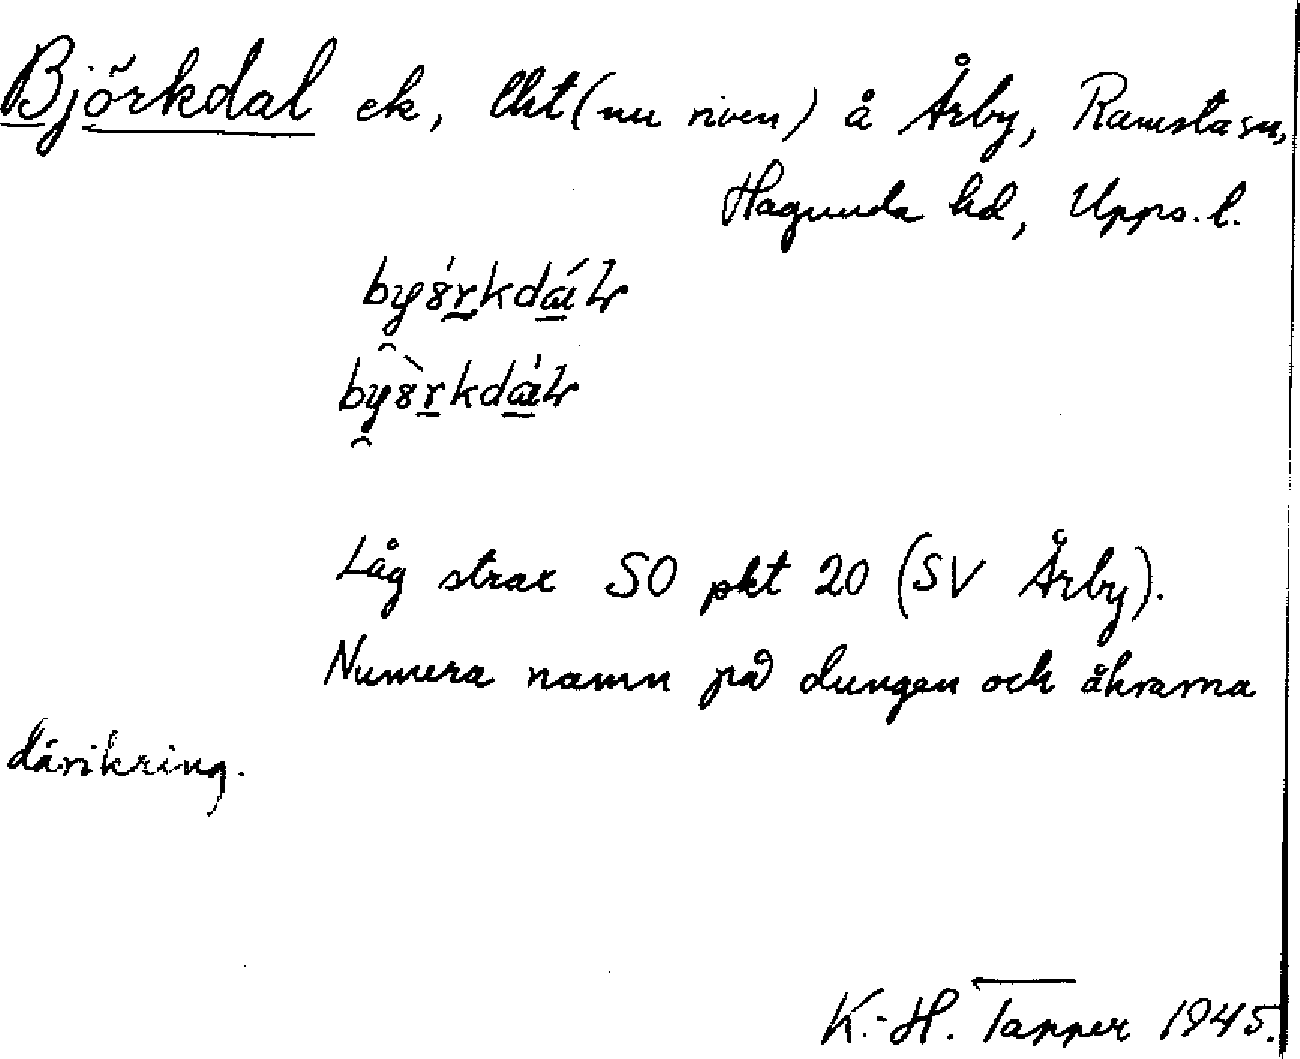 Björkdal ck, lht (nu riven) å Årby, Ramsta sn,
Hagunda hd, Upps. l.
Låg strax SO pkt 20 (SV Årby).
Numera namn på dungen och åkrarna
därikring.
K.-H. Tapper 1945.